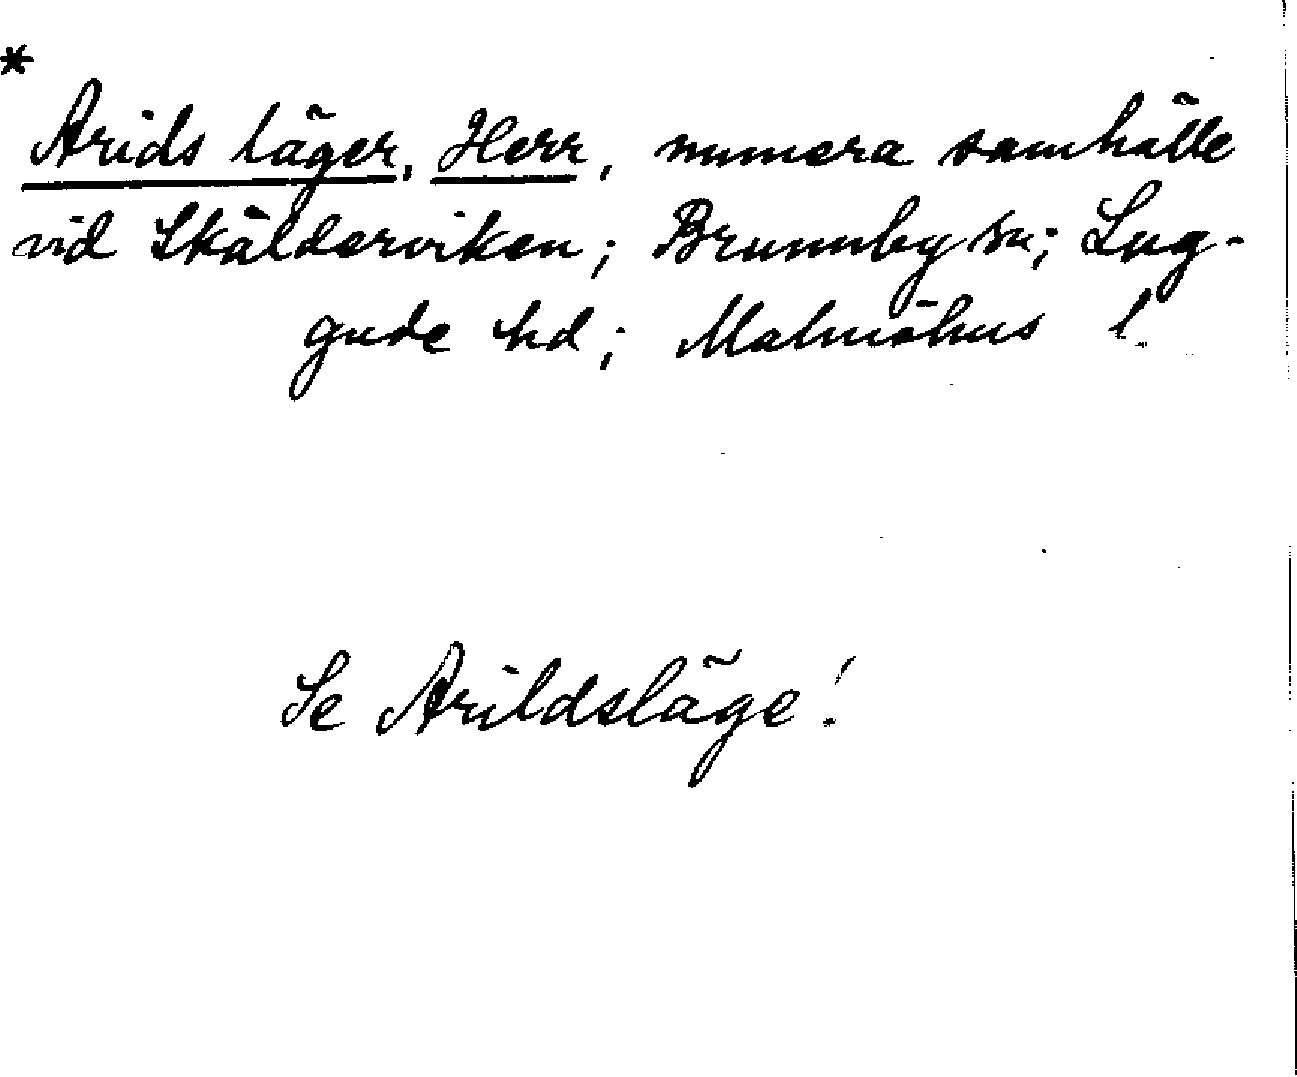 *
Arids läger, Herr, numera samhälle
vid Skälderviken; Brunnby sn; Lug-
gude hd; Malmöhus l.
Se Arildsläge!